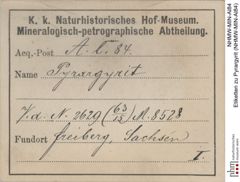 K. k. Naturhistorisches Hof-Museum.
Mineralogisch-petrographische Abtheilung.
Acq.-Post A. b. 84.
Name Pyrargyrit
V. d. N. 2629 (63/12) M. 8528
Fundort Freiberg, Sachsen
I.
NHMW-MIN-A/84
Etiketten zu Pyrargyrit (NHMW-MIN-A/84)
nhm